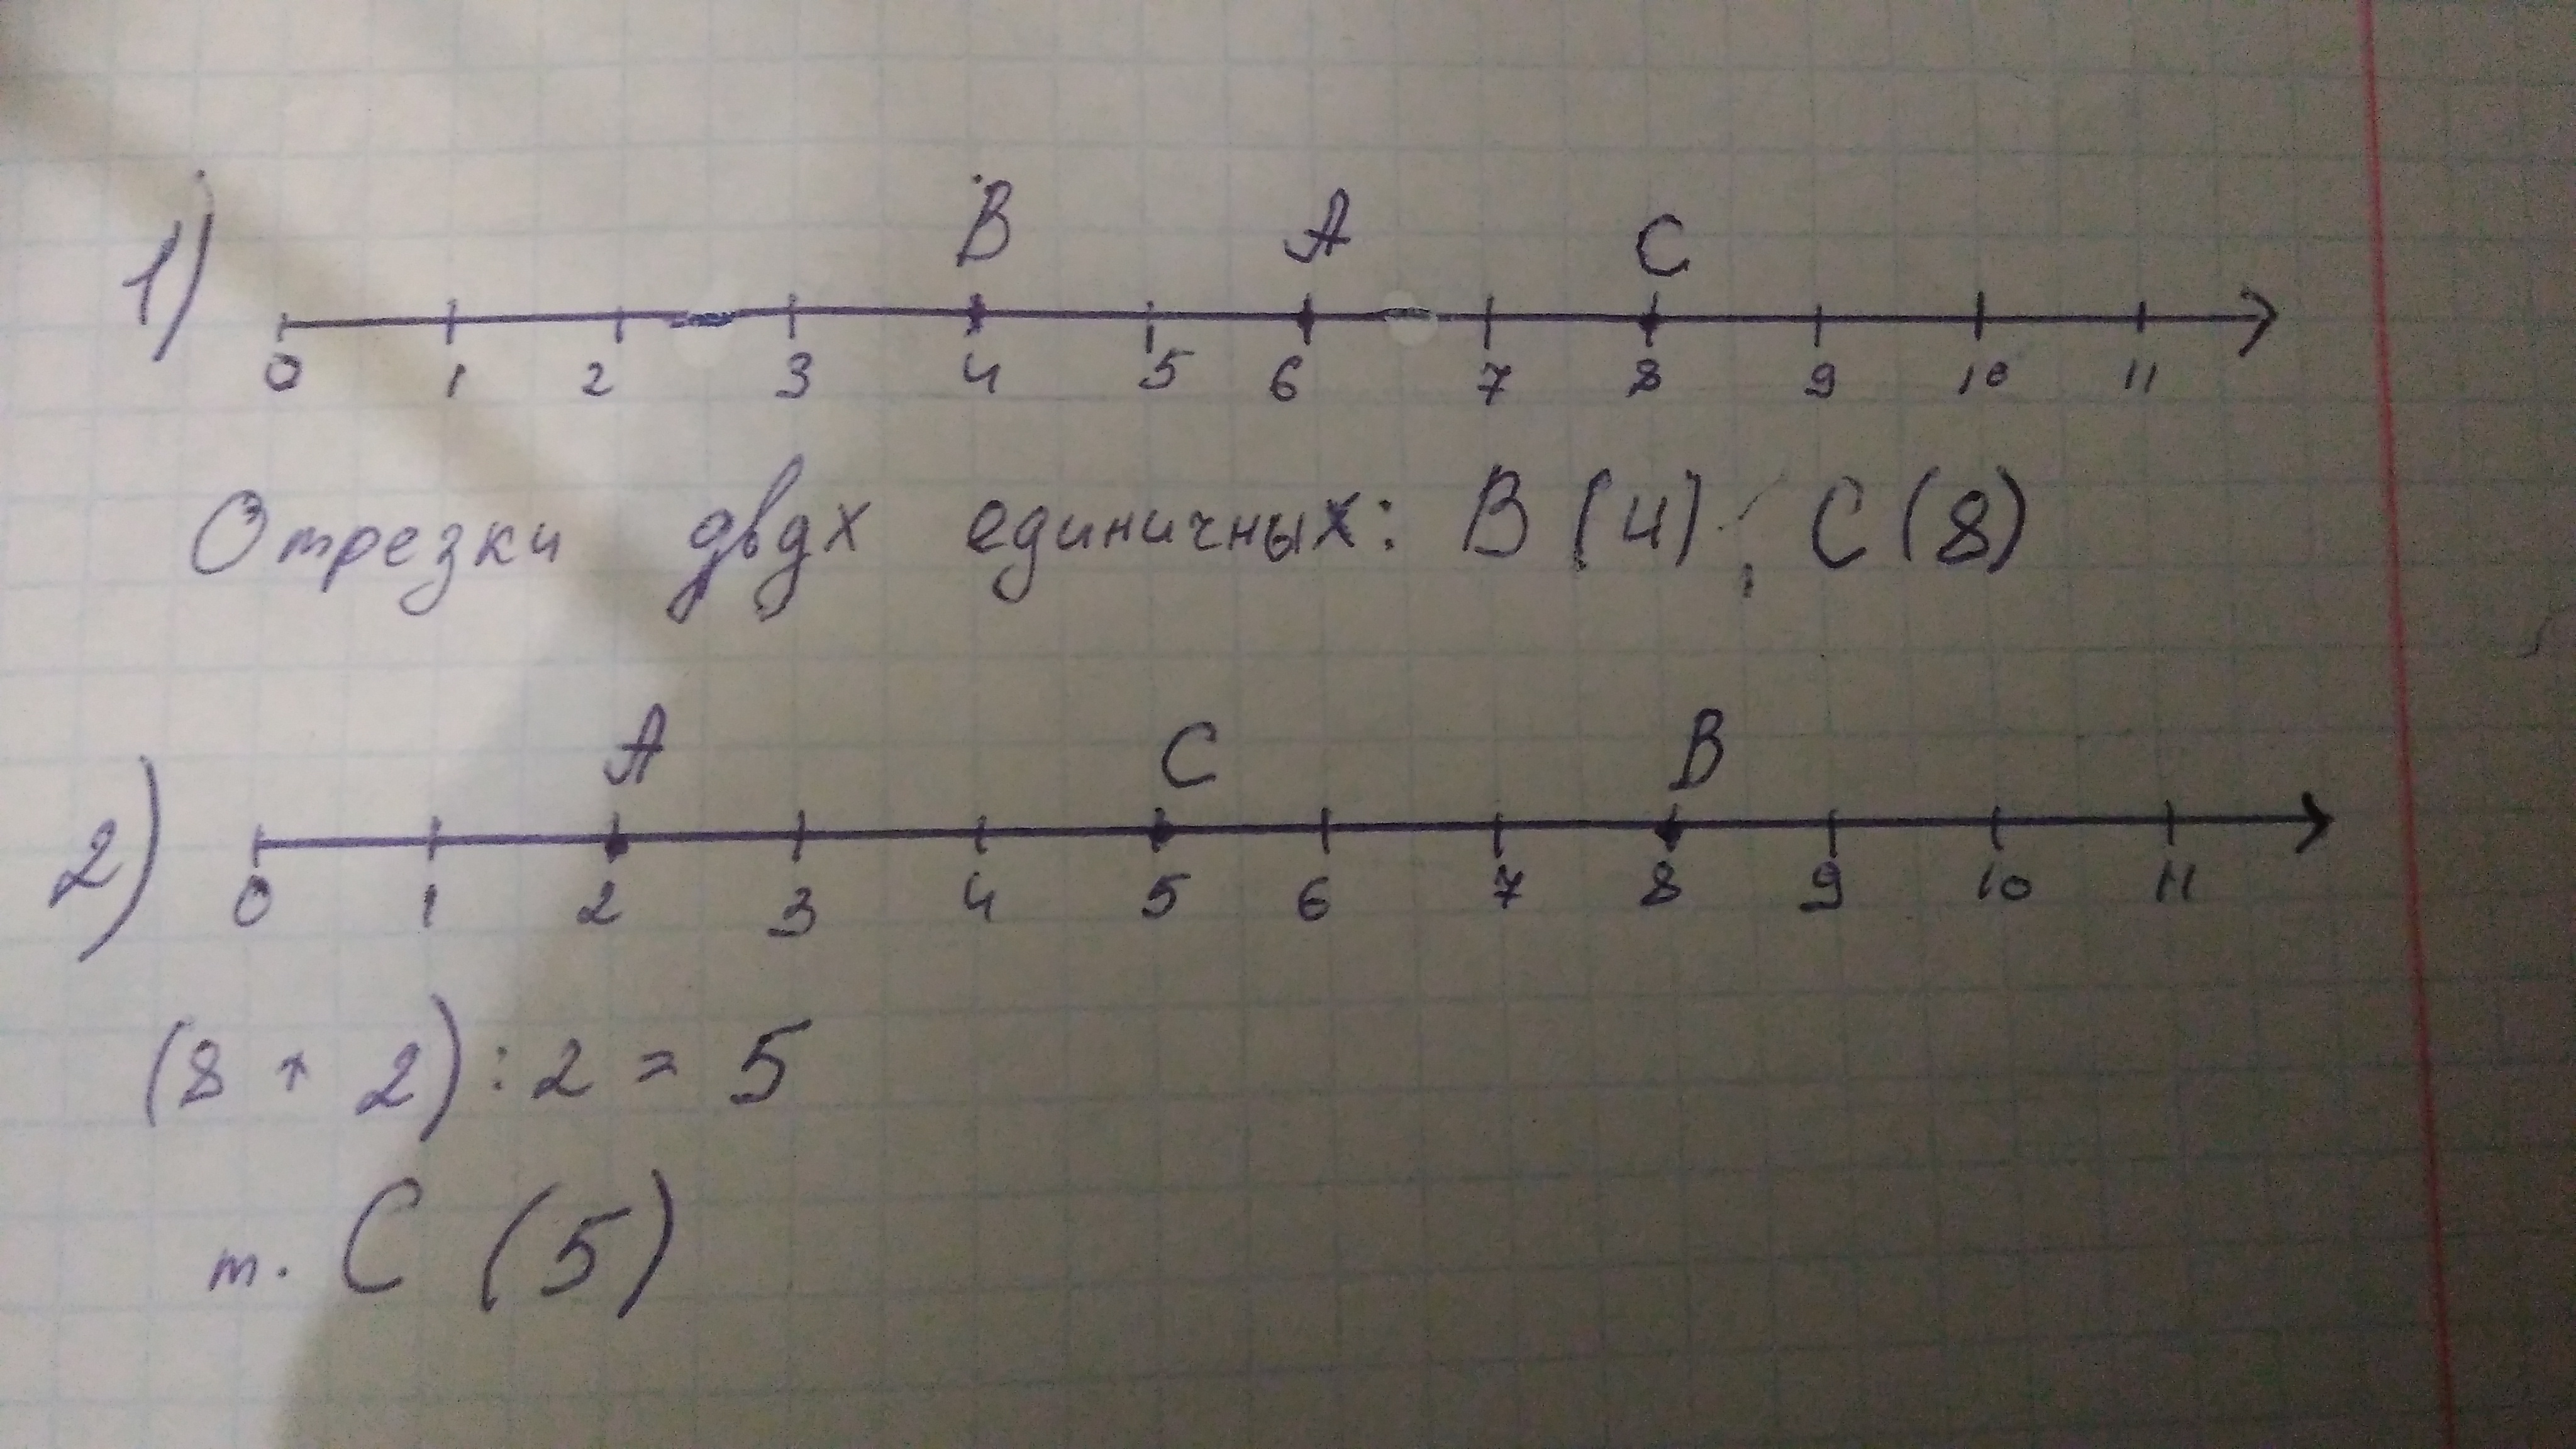 1)
B A C
0 1 2 3 4 5 6 7 8 9 10 11
Отрезки двух единичных: B (4); C (8)
2)
A C B
0 1 2 3 4 5 6 7 8 9 10 11
(8 + 2) : 2 = 5
т. C (5)